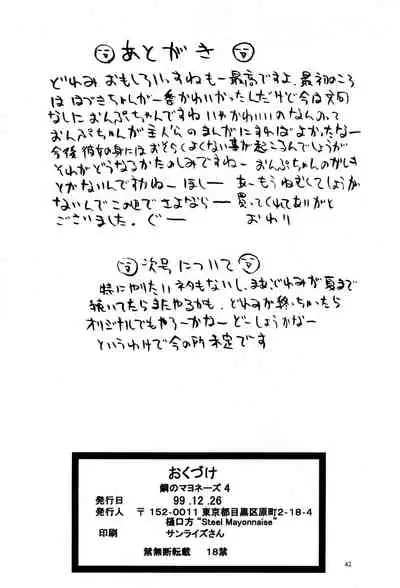 あとがき
どれみおもしろいすねもー最高ですよ。最初ころ
ははづきちゃんが一番かわいかったしだけど今は文句
なしにおんぷちゃんですねいゃかわいいのなんのって
おんぷちゃんが主人公のまんがにすればよかったなー
今後彼女の身にはおそらくよくない事が起ころんでしょうが
それがどうなるかたのしみですねー おんぷちゃんのがしき
とかないんですかねーほしー あーもうねむくてしょうが
ないんでこの辺でさよならー 買ってくれてありがと
ございました。ぐー おわり
次号について
特にやりたいネタもないし、まだどれみが夏まで
続いてたらまたやるかも、どれみが終っちゃったら
オリジナルでもやろーかなー どーしょうかなー
というわけで今の所未定です
おくづけ
鋼のマヨネーズ 4
発行日 99.12.26
発行人 〒152-0011 東京都目黒区原町2-18-4
樋口方 "Steel Mayonnaise"
印刷 サンライズさん
禁無断転載 18禁
42